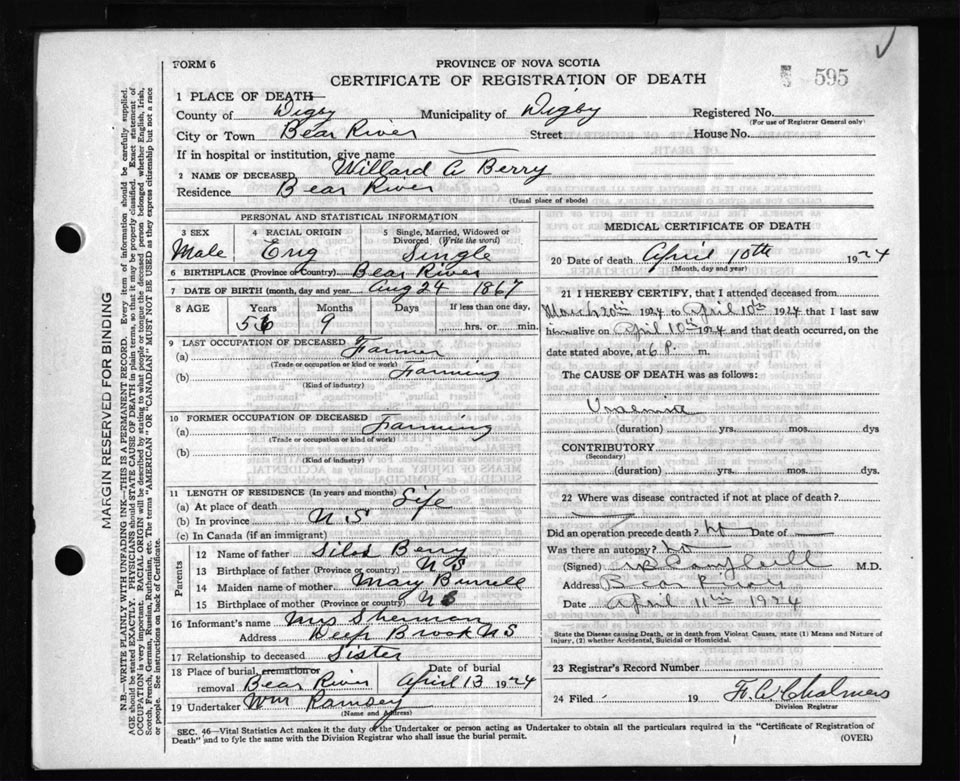 FORM 6
PROVINCE OF NOVA SCOTIA
CERTIFICATE OF REGISTRATION OF DEATH
595
1 PLACE OF DEATH—
County of Digby Municipality of Digby Registered No.
(For use of Registrar General only)
City or Town Bear River Street House No.
If in hospital or institution, give name —
2 NAME OF DECEASED Willard A Berry
Residence Bear River
(Usual place of abode)
PERSONAL AND STATISTICAL INFORMATION
3 SEX 4 RACIAL ORIGIN 5 Single, Married, Widowed or Divorced (Write the word)
Male Eng Single
6 BIRTHPLACE (Province or Country) Bear River
7 DATE OF BIRTH (month, day and year) Aug 24 1867
8 AGE Years Months Days If less than one day,
56 9 hrs. or min.
9 LAST OCCUPATION OF DECEASED
(a) Farmer
(Trade or occupation or kind or work)
(b) Farming
(Kind of industry)
10 FORMER OCCUPATION OF DECEASED
(a) Farming
(Trade or occupation or kind of work)
(b)
(Kind of industry)
11 LENGTH OF RESIDENCE (In years and months)
(a) At place of death Life
(b) In province N S
(c) In Canada (if an immigrant)
Parents
12 Name of father Silas Berry
13 Birthplace of father (Province or country) N S
14 Maiden name of mother Mary Burrell
15 Birthplace of mother (Province or country) N S
16 Informant's name Mrs Sherman
Address Deep Brook N S
17 Relationship to deceased Sister
18 Place of burial, cremation or removal Bear River Date of burial April 13 1924
19 Undertaker Wm Ramsey
(Name and Address)
MEDICAL CERTIFICATE OF DEATH
20 Date of death April 10th 1924
(Month, day and year)
21 I HEREBY CERTIFY, that I attended deceased from
March 20th 1924 to April 10th 1924 that I last saw
him alive on April 10th 1924 and that death occurred, on the
date stated above, at 6 P. m.
The CAUSE OF DEATH was as follows:
(duration) yrs. mos. dys
CONTRIBUTORY
(Secondary)
(duration) yrs. mos. dys.
22 Where was disease contracted if not at place of death?
Did an operation precede death? No Date of —
Was there an autopsy? No
(Signed) Campbell M.D.
Address Bear River
Date April 11th 1924
State the Disease causing Death, or in death from Violent Causes, state (1) Means and Nature of
injury, (2) whether Accidental, Suicidal or Homicidal.
23 Registrar's Record Number
24 Filed 19 Chalmers
Division Registrar
SEC. 46—Vital Statistics Act makes it the duty of the Undertaker or person acting as Undertaker to obtain all the particulars required in the "Certificate of Registration of
Death" and to fyle the same with the Division Registrar who shall issue the burial permit. (OVER)
MARGIN RESERVED FOR BINDING
N.B.—WRITE PLAINLY WITH UNFADING INK—THIS IS A PERMANENT RECORD. Every item of information should be carefully supplied.
AGE should be stated EXACTLY. PHYSICIANS should STATE CAUSE OF DEATH in plain terms, so that it may be properly classified. Exact statement of
OCCUPATION is very important. RACIAL ORIGIN will be described by stating to what people or tongue the deceased person belonged whether English, Irish,
Scotch, French, German, Russian, Ruthenian, etc. The terms "AMERICAN" OR "CANADIAN" MUST NOT BE USED as they express citizenship but not a race
or people. See instructions on back of Certificate.